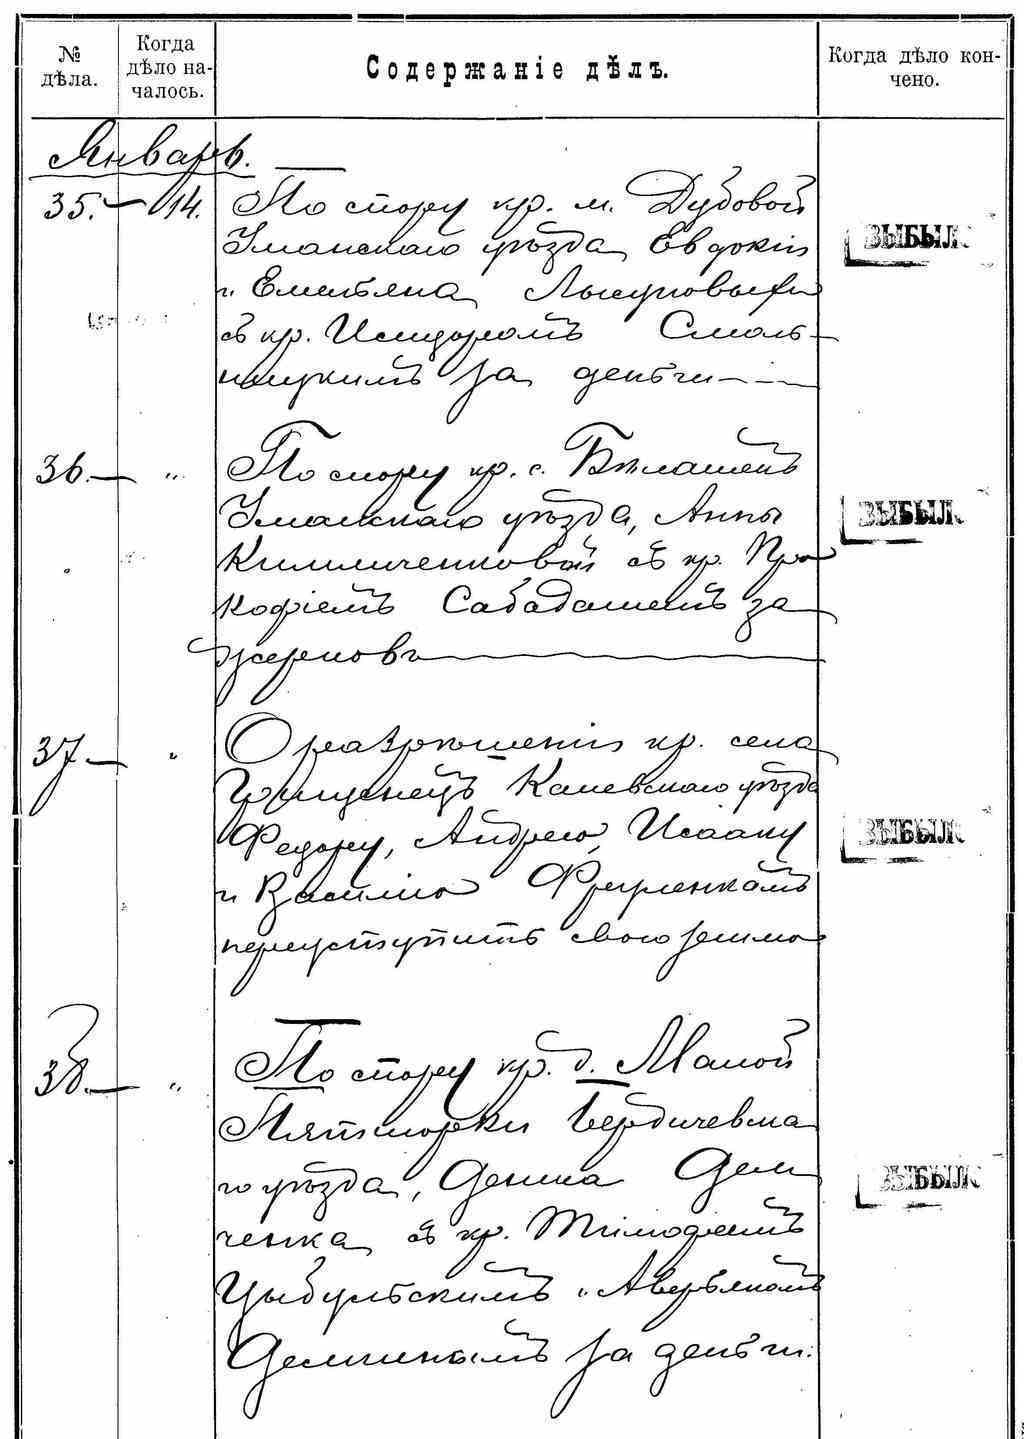 № дѣла.
Когда дѣло на-
чалось.
Содержаніе дѣлъ.
Когда дѣло кон-
чено.
Январь.
35. 14. По спору кр. м. Дубовой
Уманскаго уѣзда Евдокіи
и Емельяна
съ кр. Исидоромъ Смоль-
за деньги
ВЫБЫЛО
36. „ По спору кр. с.
Уманскаго уѣзда, Анны
Климченковой съ кр. Про
кофіемъ Сабадашемъ за
жерновъ
ВЫБЫЛО
37 „ О разрѣшеніи кр. села
Грищенецъ Каневскаго уѣзда
Федору, Андрею, Исааку
и Василію
переуступить свою землю
ВЫБЫЛО
38. „ По спору кр. д. Малой
Пятигорки Бердичевска
го уѣзда, Дениса Дем
ченка съ кр. Тимофіемъ
Цыбульскимъ и Аверьяномъ
за деньги.
ВЫБЫЛО